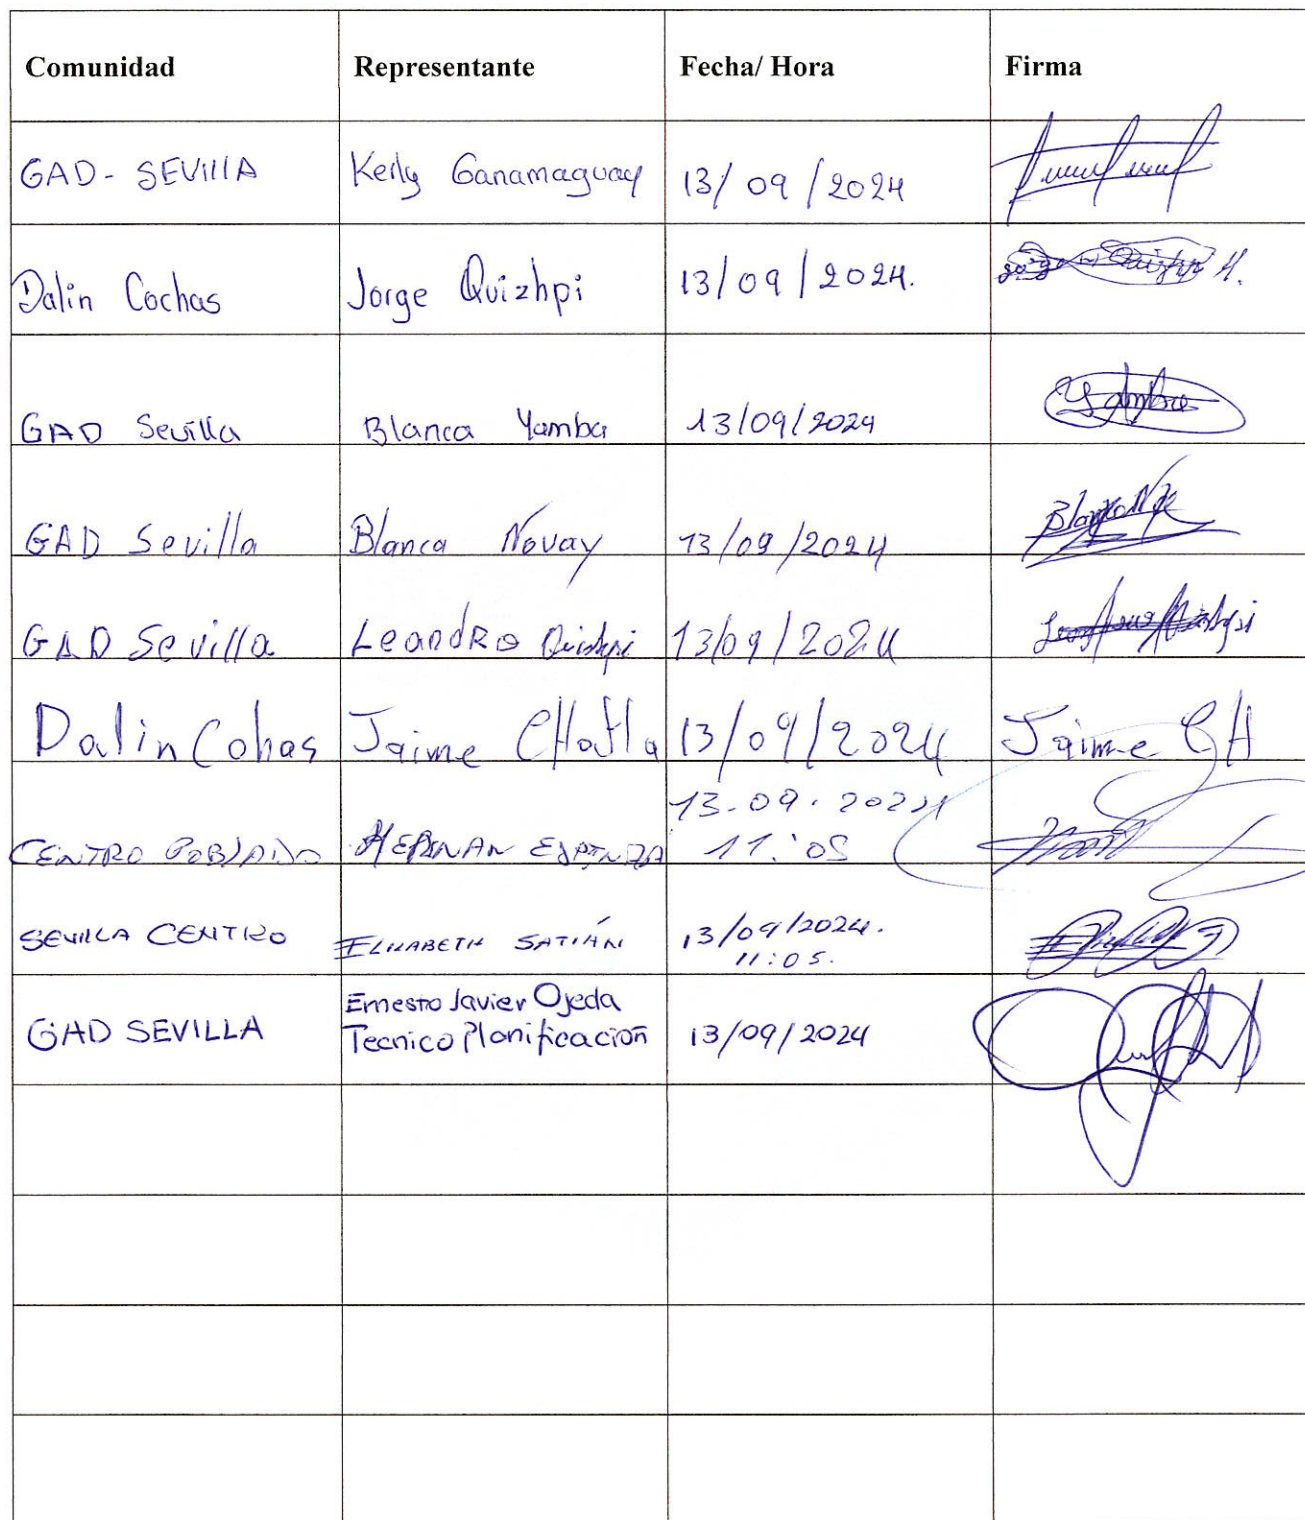 Comunidad Representante Fecha/ Hora Firma
GAD - SEVIllA Kerly Ganamaguay 13/ 09 / 2024
Dalin Cochas Jorge Quizhpi 13/09/2024. Jorge Quizhpi H.
GAD Sevilla Blanca Yamba 13/09/2024 Yamba
GAD Sevilla Blanca Novay 13/09/2024 Blanca
GAD Sevilla LeandRo Quizhpi 13/09/2024
Dalin Cohas Jaime CHafla 13/09/2024 Jaime CH
13-09-2024
CENTRO POBLADO HERNAN ESPINOZA 11:05
SEVILLA CENTRO ELIZABETH SATIÁN 13/09/2024.
11:05.
Ernesto Javier Ojeda
GAD SEVILLA Tecnico Planificación 13/09/2024